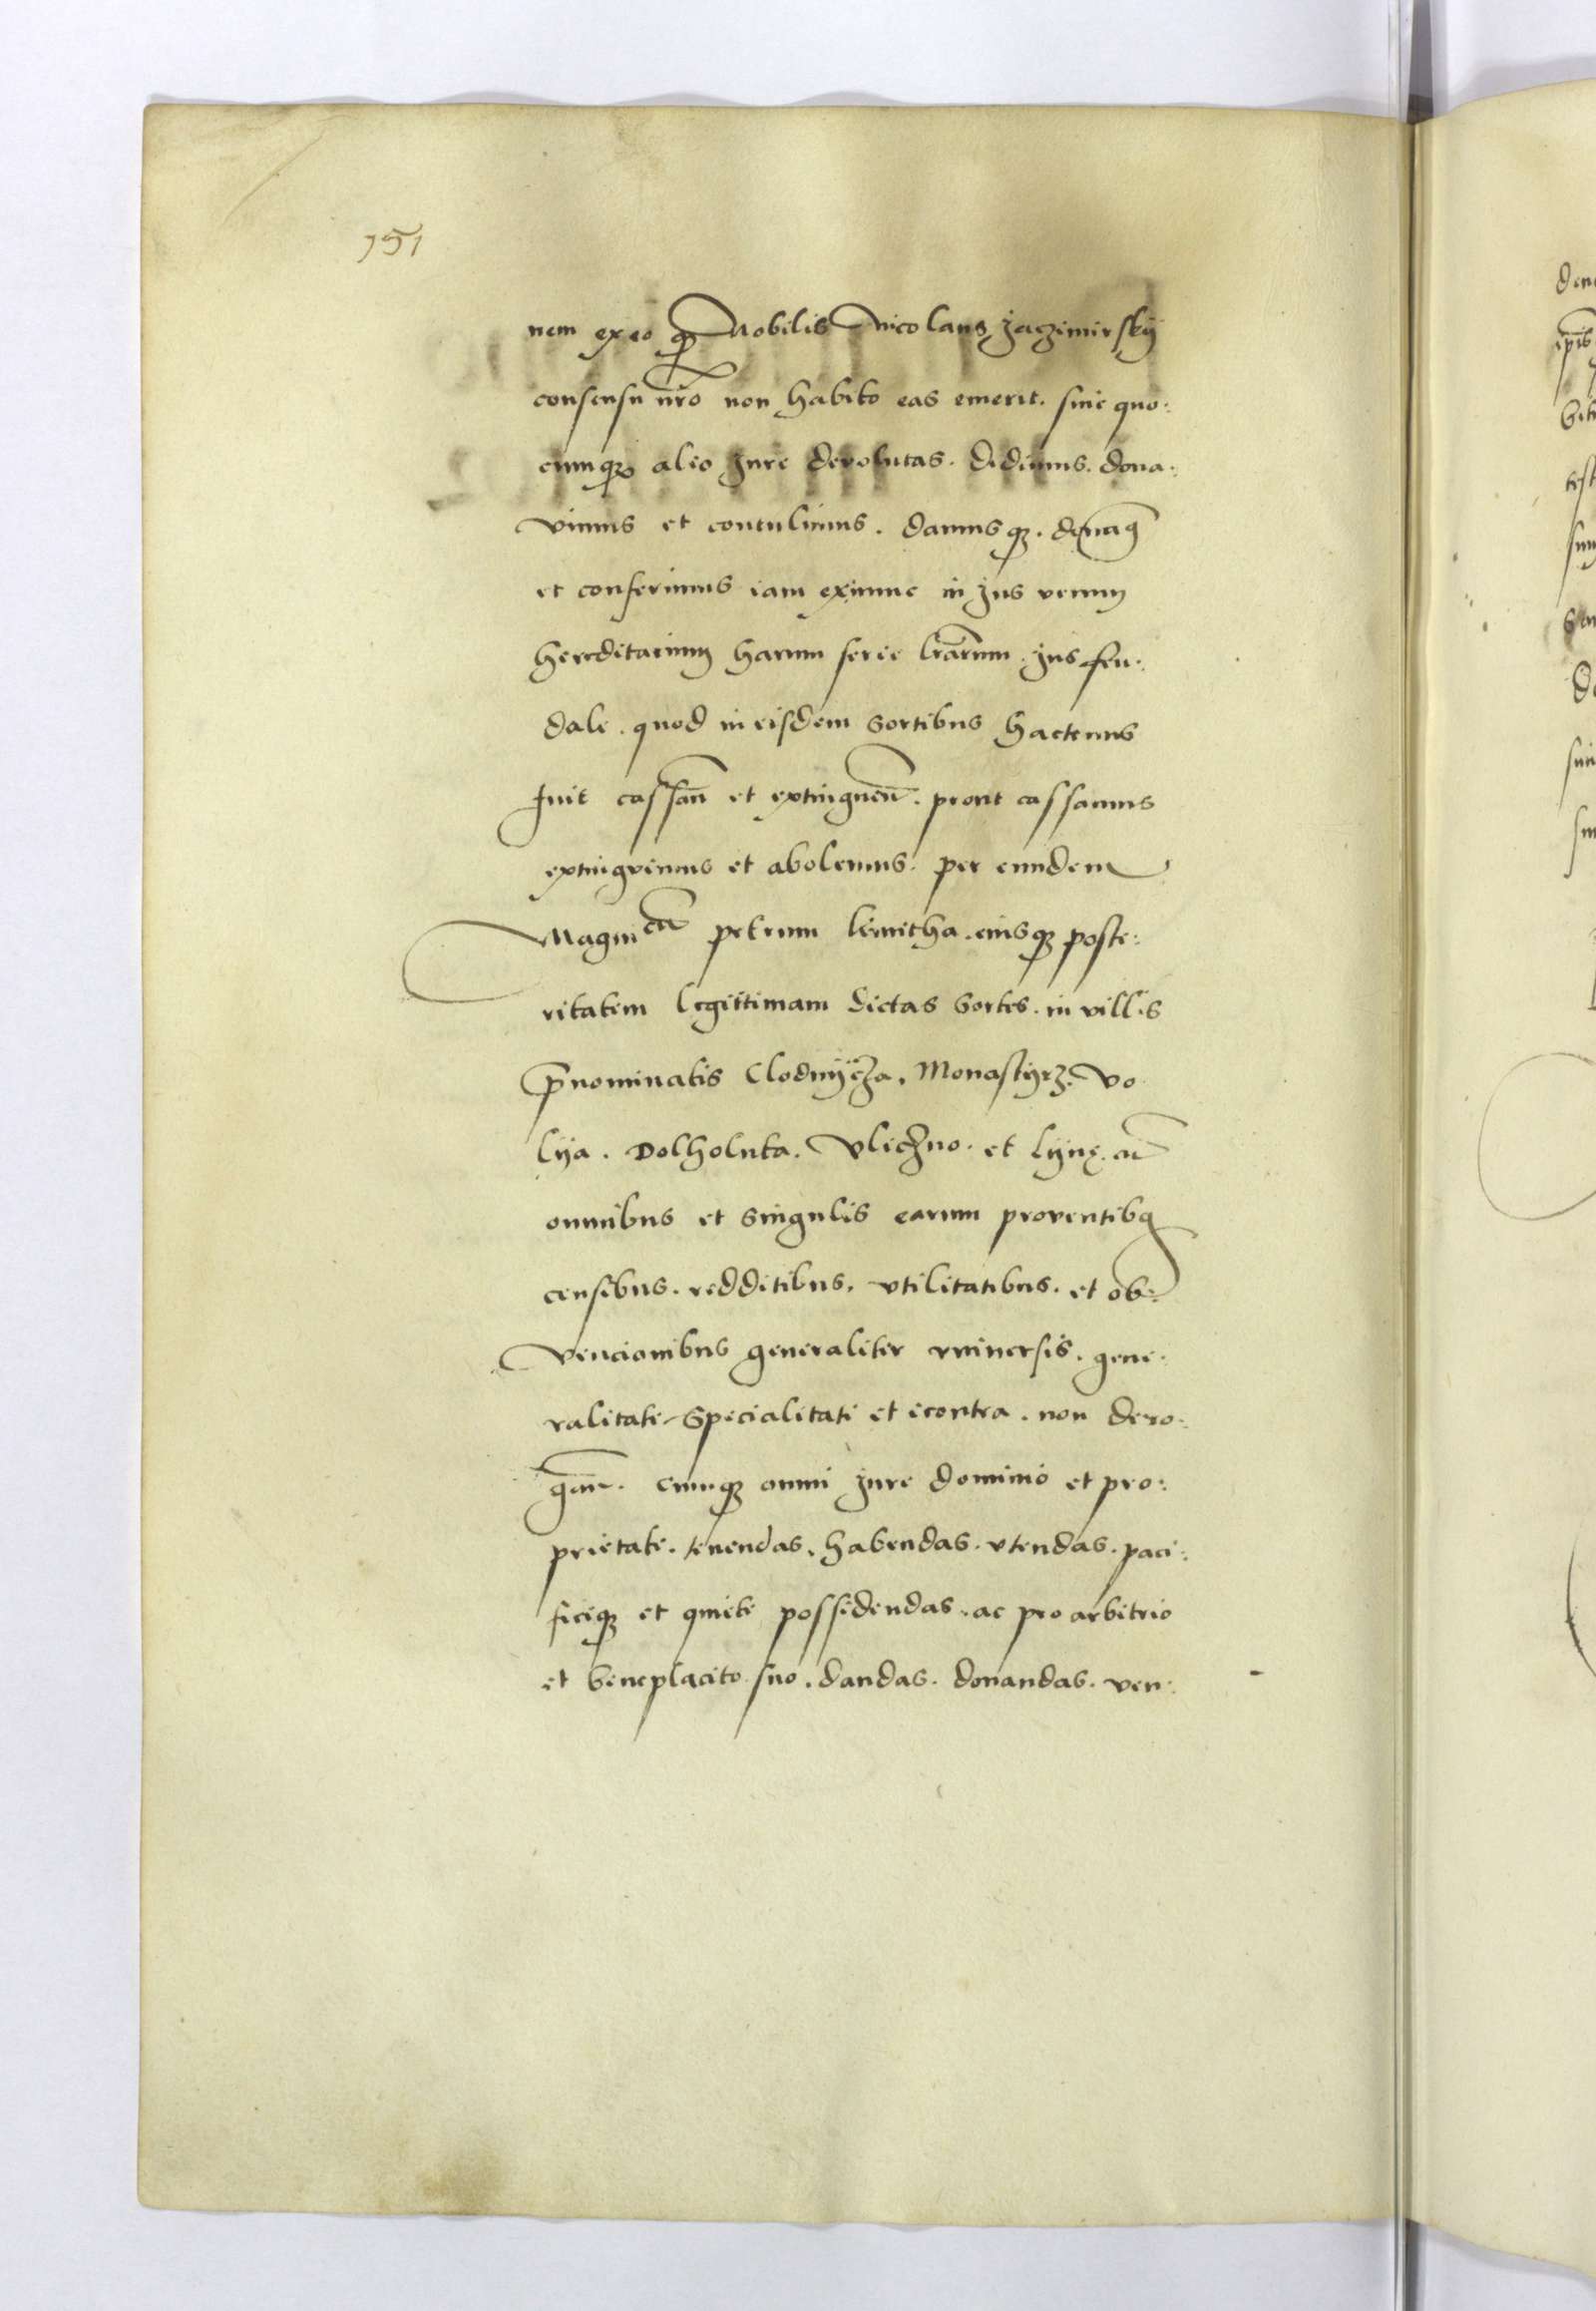 151
nem ex eo q̃ Nobilis Nicolaus Jaczimirskÿ
consensu nr̃o non habito eas emerit. siue quo:
cumq; alio Jure deuolutas. Dedimus. dona:
uimus et contulimus. damusq;. donaꝫ
et conferimus iam ex nunc in Jus verum
hereditarium harum serie lrãrum. Jus feu:
dale. quod in eisdem sortibus hactenus
fuit cassañ et extinguen̄. prout cassamus
extinguimus et abolemus. per eundem
Magnᶜᵘ̃ petrum kmitha. eiusq; poste:
ritatem legittimam dictas sortes. in villis
p̃nominatis Clodnÿcza. Monastÿrz. Vo
lÿa. Dolholuka. Vliczno. et Lÿnę. cũ
omnibus et singulis earum prouentibꝫ
censibus. redditibus. vtilitatibus. et ob:
vencionibus generaliter vniuersis. gene:
ralitate specialitati et econtra. non dero:
gan̄. cumq; omni Jure dominio et pro:
prietate. tenendas. habendas. vtendas. paci:
ficeq; et quiete possidendas. ac pro arbitrio
et beneplacito suo. dandas. donandas. ven: